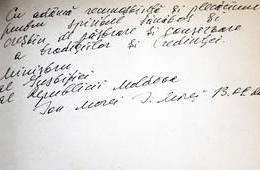 Cu adâncă recunoștință și plecăciune
pentru spiritul sănătos și
creștin al păstrare și conservare
a tradițiilor și credinței.
Ministru
al Justiției
al Republicii Moldova
Ion Morei I. Morei 13.02.